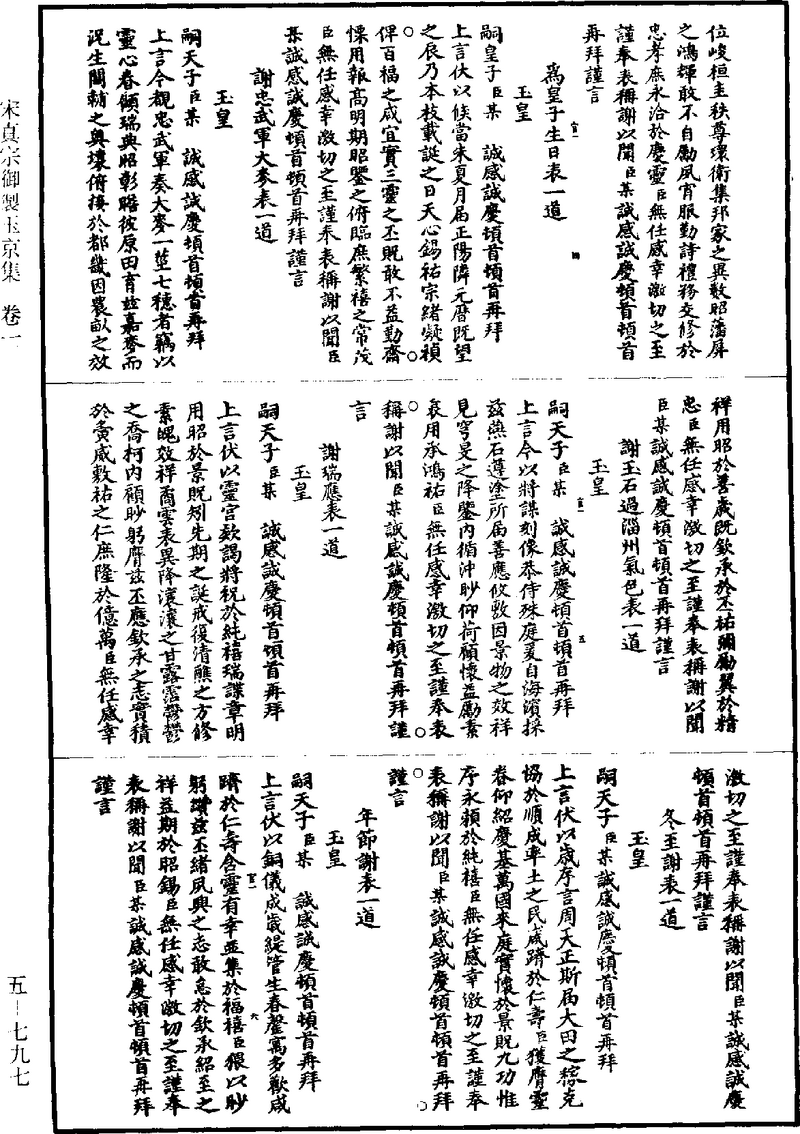 位峻桓圭秩尊環衛集邦家之異數昭藩屏
之鴻輝敢不自勵夙宵服勤詩禮務交修於
忠孝庶永洽於慶靈臣無任感幸激切之至
謹奉表稱謝以聞臣某誠感誠慶頓首頓首
再拜謹言
為皇子生日表一道
玉皇
嗣皇子臣某 誠感誠慶頓首頓首再拜
上言伏以候當朱夏月屆正陽隣元曆既望
之辰乃本枝載誕之日天心錫祐宗緒凝禎
俾百福之咸宜實三靈之丕貺敢不益勤齋
慄用報高明期昭鑒之俯臨庶繁禧之常茂
臣無任感幸激切之至謹奉表稱謝以聞臣
某誠感誠慶頓首頓首再拜謹言
謝忠武軍大麥表一道
玉皇
嗣天子臣某 誠感誠慶頓首頓首再拜
上言今覩忠武軍奏大麥一莖七穗者竊以
靈心眷顧瑞典昭彰睠彼原田育茲嘉麥而
況生關輔之奧壤俯接於都畿因農畝之效
祥用昭於善歲既欽承於丕祐彌勵翼於精
忠臣無任感幸激切之至謹奉表稱謝以聞
臣某誠感誠慶頓首頓首再拜謹言
謝玉石過淄州氣色表一道
玉皇
嗣天子臣某 誠感誠慶頓首頓首再拜
上言今以將謀刻像恭侍殊庭爰自海濱採
茲燕石遵塗所届善應攸敷因景物之效祥
見穹旻之降鑒內循沖眇仰荷顧懷益勵素
衷用承鴻祐臣無任感幸激切之至謹奉表
稱謝以聞臣某誠感誠慶頓首頓首再拜謹
言
謝瑞應表一道
玉皇
嗣天子臣某 誠感誠慶頓首頓首再拜
上言伏以靈宮欸謁將祝於純禧瑞諜章明
用昭於景貺矧先期之誕戒復清醮之方修
素魄效祥矞雲表異降瀼瀼之甘露靄鬱鬱
之喬柯內顧眇躬膺茲丕應欽承之志實積
於夤威敷祐之仁庶隆於億萬臣無任感幸
激切之至謹奉表稱謝以聞臣某誠感誠慶
頓首頓首再拜謹言
冬至謝表一道
玉皇
嗣天子臣某誠感誠慶頓首頓首再拜
上言伏以歲序言周天正斯屆大田之稼克
協於順成率土之民咸躋於仁壽臣獲膺靈
眷仰紹慶基萬國來庭實懷於景貺九功惟
序永賴於純禧臣無任感幸激切之至謹奉
表稱謝以聞臣某誠感誠慶頓首頓首再拜
謹言
年節謝表一道
玉皇
嗣天子臣某 誠感誠慶頓首頓首再拜
上言伏以銅儀成歲緹管生春罄寓多歡咸
躋於仁壽含靈有幸並集於福禧臣猥以眇
躬纘茲丕緒夙興之志敢怠於欽承紹至之
祥益期於昭錫臣無任感幸激切之至謹奉
表稱謝以聞臣某誠感誠慶頓首頓首再拜
謹言
宋真宗御製玉京集 卷一
五－七九七